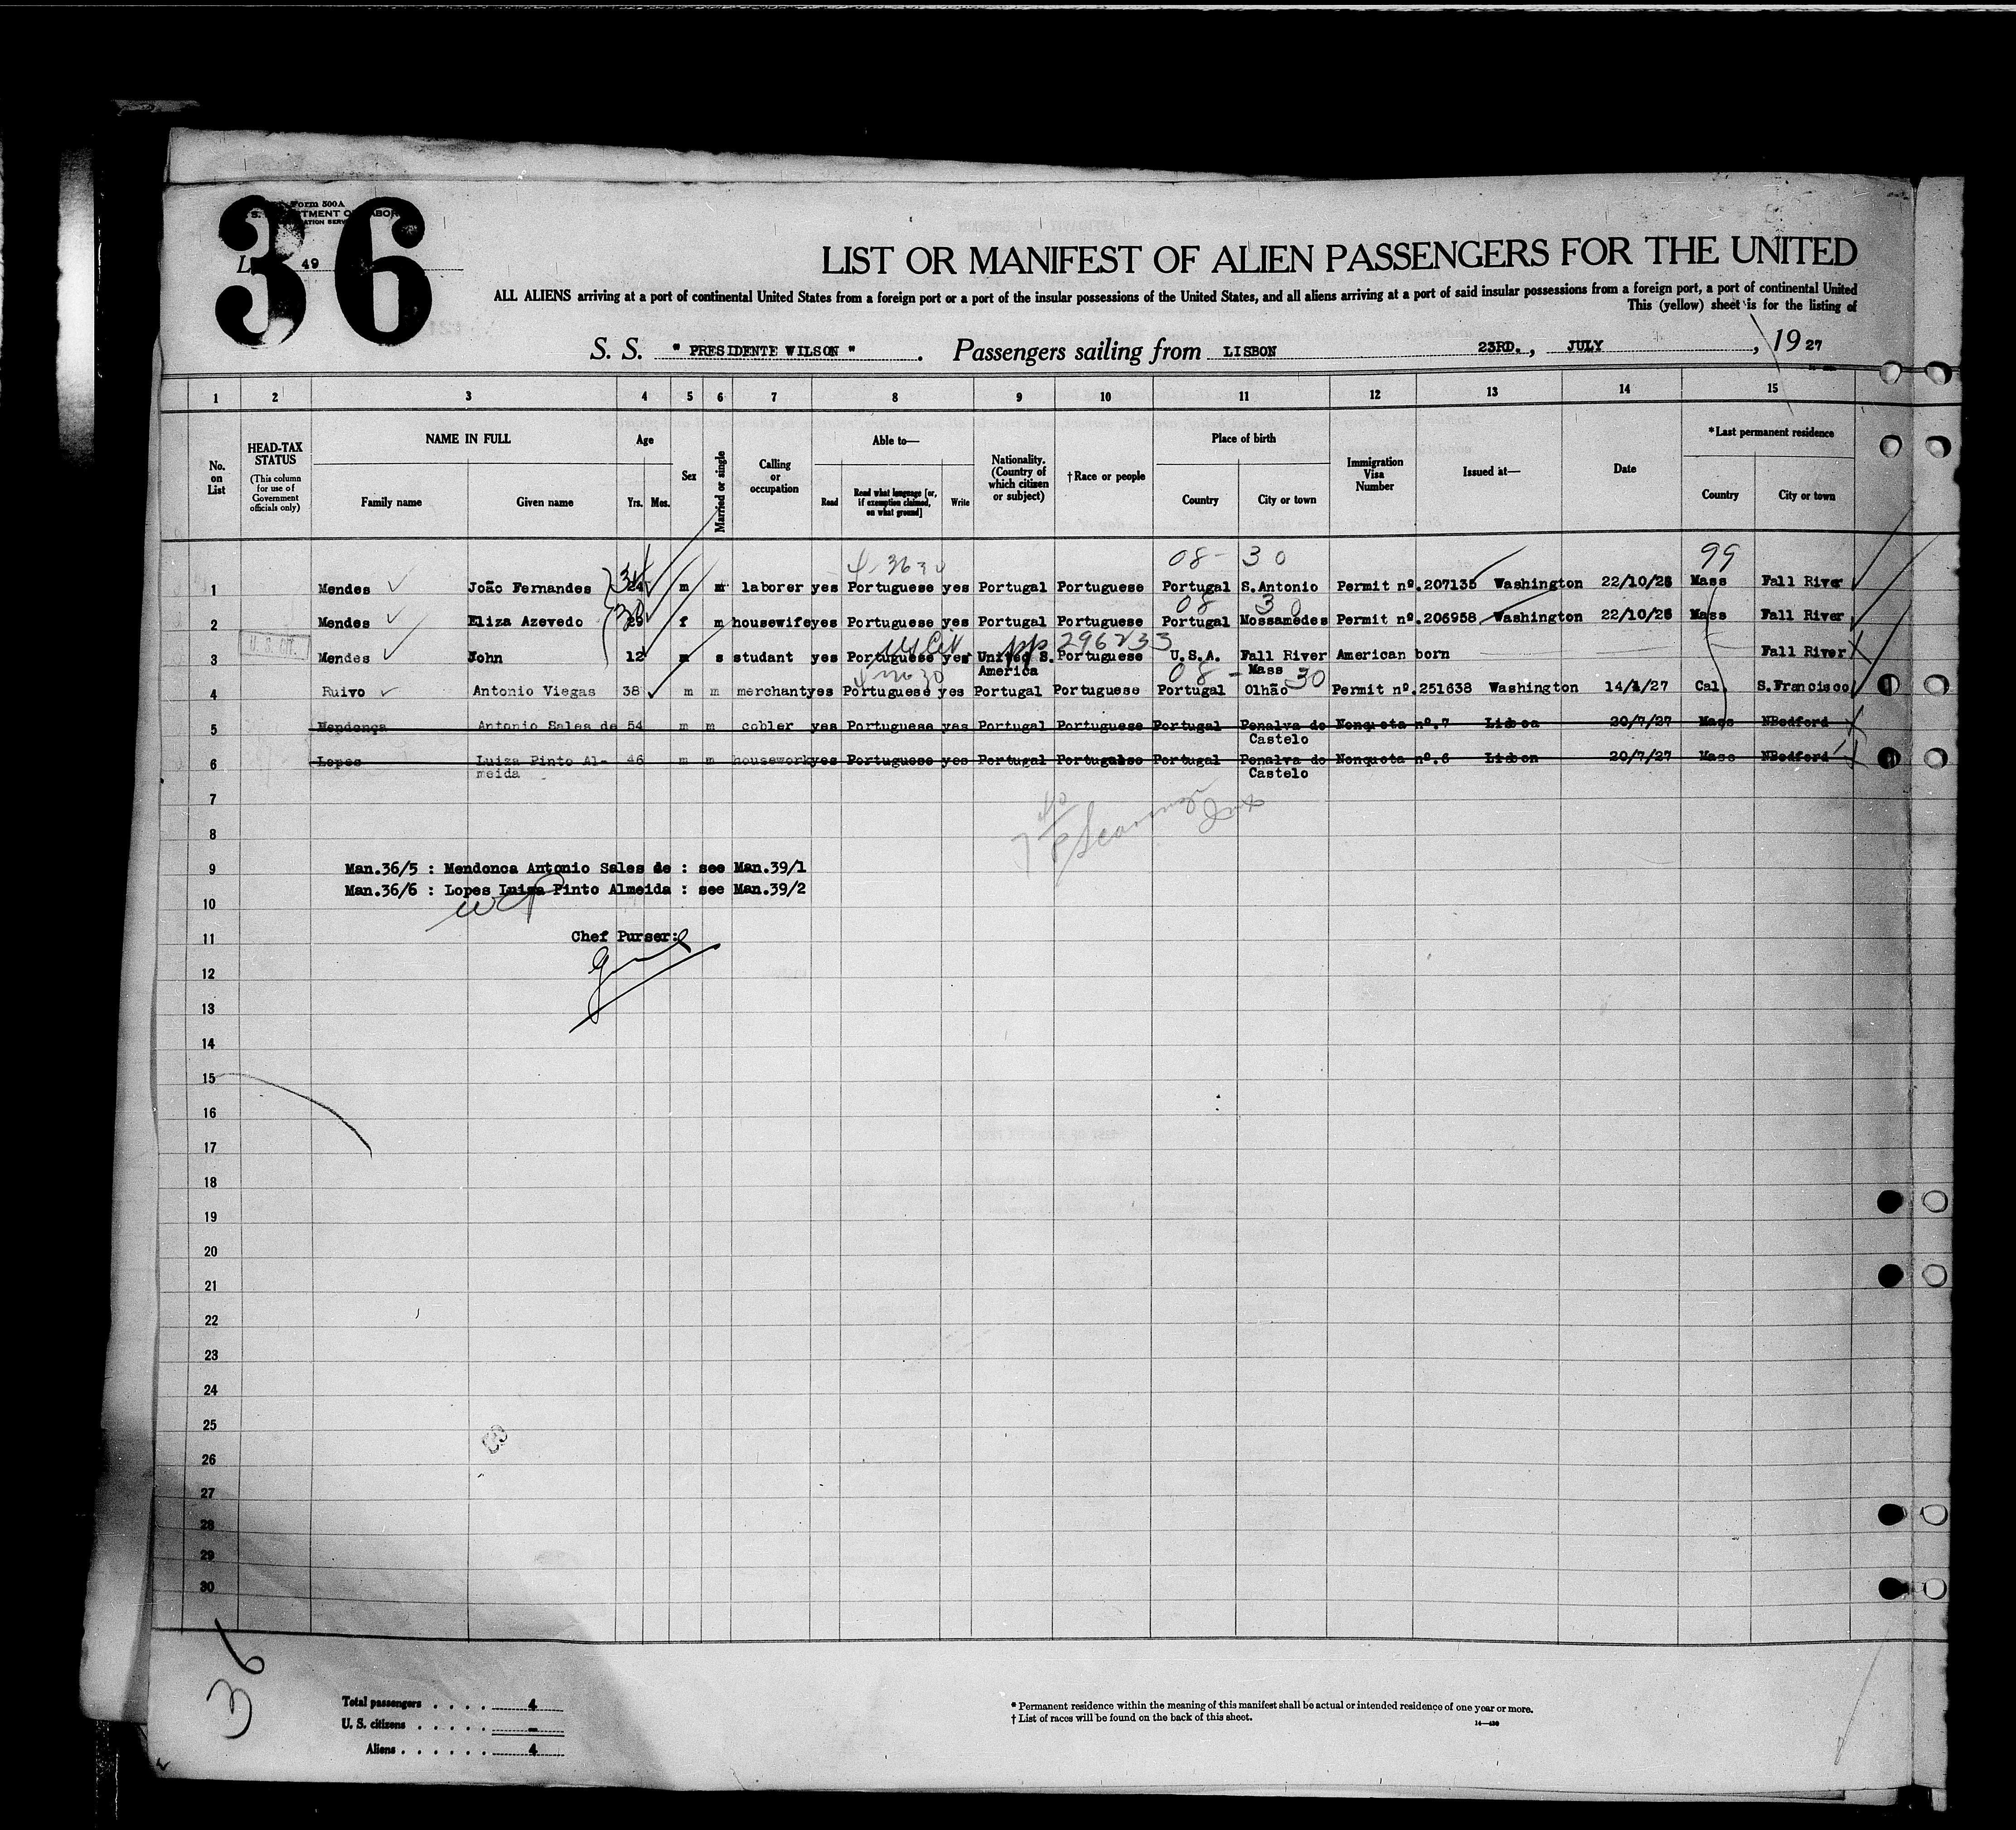 Form 500A
36
49
LIST OR MANIFEST OF ALIEN PASSENGERS FOR THE UNITED
ALL ALIENS arriving at a port of continental United States from a foreign port or a port of the insular possessions of the United States, and all aliens arriving at a port of said insular possessions from a foreign port, a port of continental United
This (yellow) sheet is for the listing of
S. S. " PRESIDENTE WILSON " . Passengers sailing from LISBON 23RD. , JULY , 1927
1 2 3 4 5 6 7 8 9 10 11 12 13 14 15
No. on List
HEAD-TAX STATUS
(This column for use of Government officials only)
NAME IN FULL
Family name Given name
Age
Yrs. Mos.
Sex
Married or single
Calling or occupation
Able to—
Read Read what language [or, if exemption claimed, on what ground] Write
Nationality. (Country of which citizen or subject)
†Race or people
Place of birth
Country City or town
Immigration Visa Number
Issued at—
Date
*Last permanent residence
Country City or town
08- 30 99
1 Mendes João Fernandes 34 m m laborer yes Portuguese yes Portugal Portuguese Portugal S.Antonio Permit nº.207135 Washington 22/10/26 Mass Fall River
08 30
2 Mendes Eliza Azevedo 30 f m housewife yes Portuguese yes Portugal Portuguese Portugal Mossamedes Permit nº.206958 Washington 22/10/26 Mass Fall River
U. S. CIT.
US Cit pp 296233
3 Mendes John 12 m s studant yes Portuguese yes United S. America Portuguese U.S.A. Fall River Mass American born Fall River
08- 30
4 Ruivo Antonio Viegas 38 m m merchant yes Portuguese yes Portugal Portuguese Portugal Olhão Permit nº.251638 Washington 14/4/27 Cal S.Francisco
5 Mendonça Antonio Sales de 54 m m cobler yes Portuguese yes Portugal Portuguese Portugal Penalva do Castelo Nonquota nº.7 Lisbon 20/7/27 Mass NBedford
6 Lopes Luiza Pinto Almeida 46 m m housework yes Portuguese yes Portugal Portuguese Portugal Penalva do Castelo Nonquota nº.6 Lisbon 20/7/27 Mass NBedford
7
8
9 Man.36/5 : Mendonca Antonio Sales de : see Man.39/1
Man.36/6 : Lopes Luiza Pinto Almeida : see Man.39/2
10
11 Chef Purser:
12
13
14
15
16
17
18
19
20
21
22
23
24
25
26
27
28
29
30
36
Total passengers . . . . 4
U. S. citizens . . . . . -
Aliens . . . . . . 4
* Permanent residence within the meaning of this manifest shall be actual or intended residence of one year or more.
† List of races will be found on the back of this sheet.
14—430